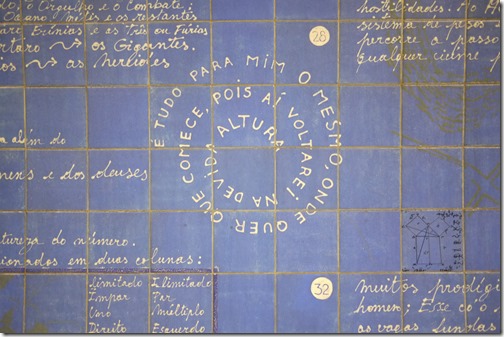 o Orgulho e o Combate.
e os restantes
Erínias e as Três ou Fúrias
os Gigantes.
as Nereides
28
hostilidades. No
sistema de pesos
percorre a passo
qualquer
É TUDO PARA MIM O MESMO, ONDE QUER QUE COMECE, POIS AÍ VOLTAREI NA DEVIDA ALTURA
a além do
mens e dos deuses
atureza do número.
cionados em duas colunas:
limitado Ilimitado
Ímpar Par
Uno múltiplo
Direito Esquerdo
32
muitos prodígi
homem;
as vagas